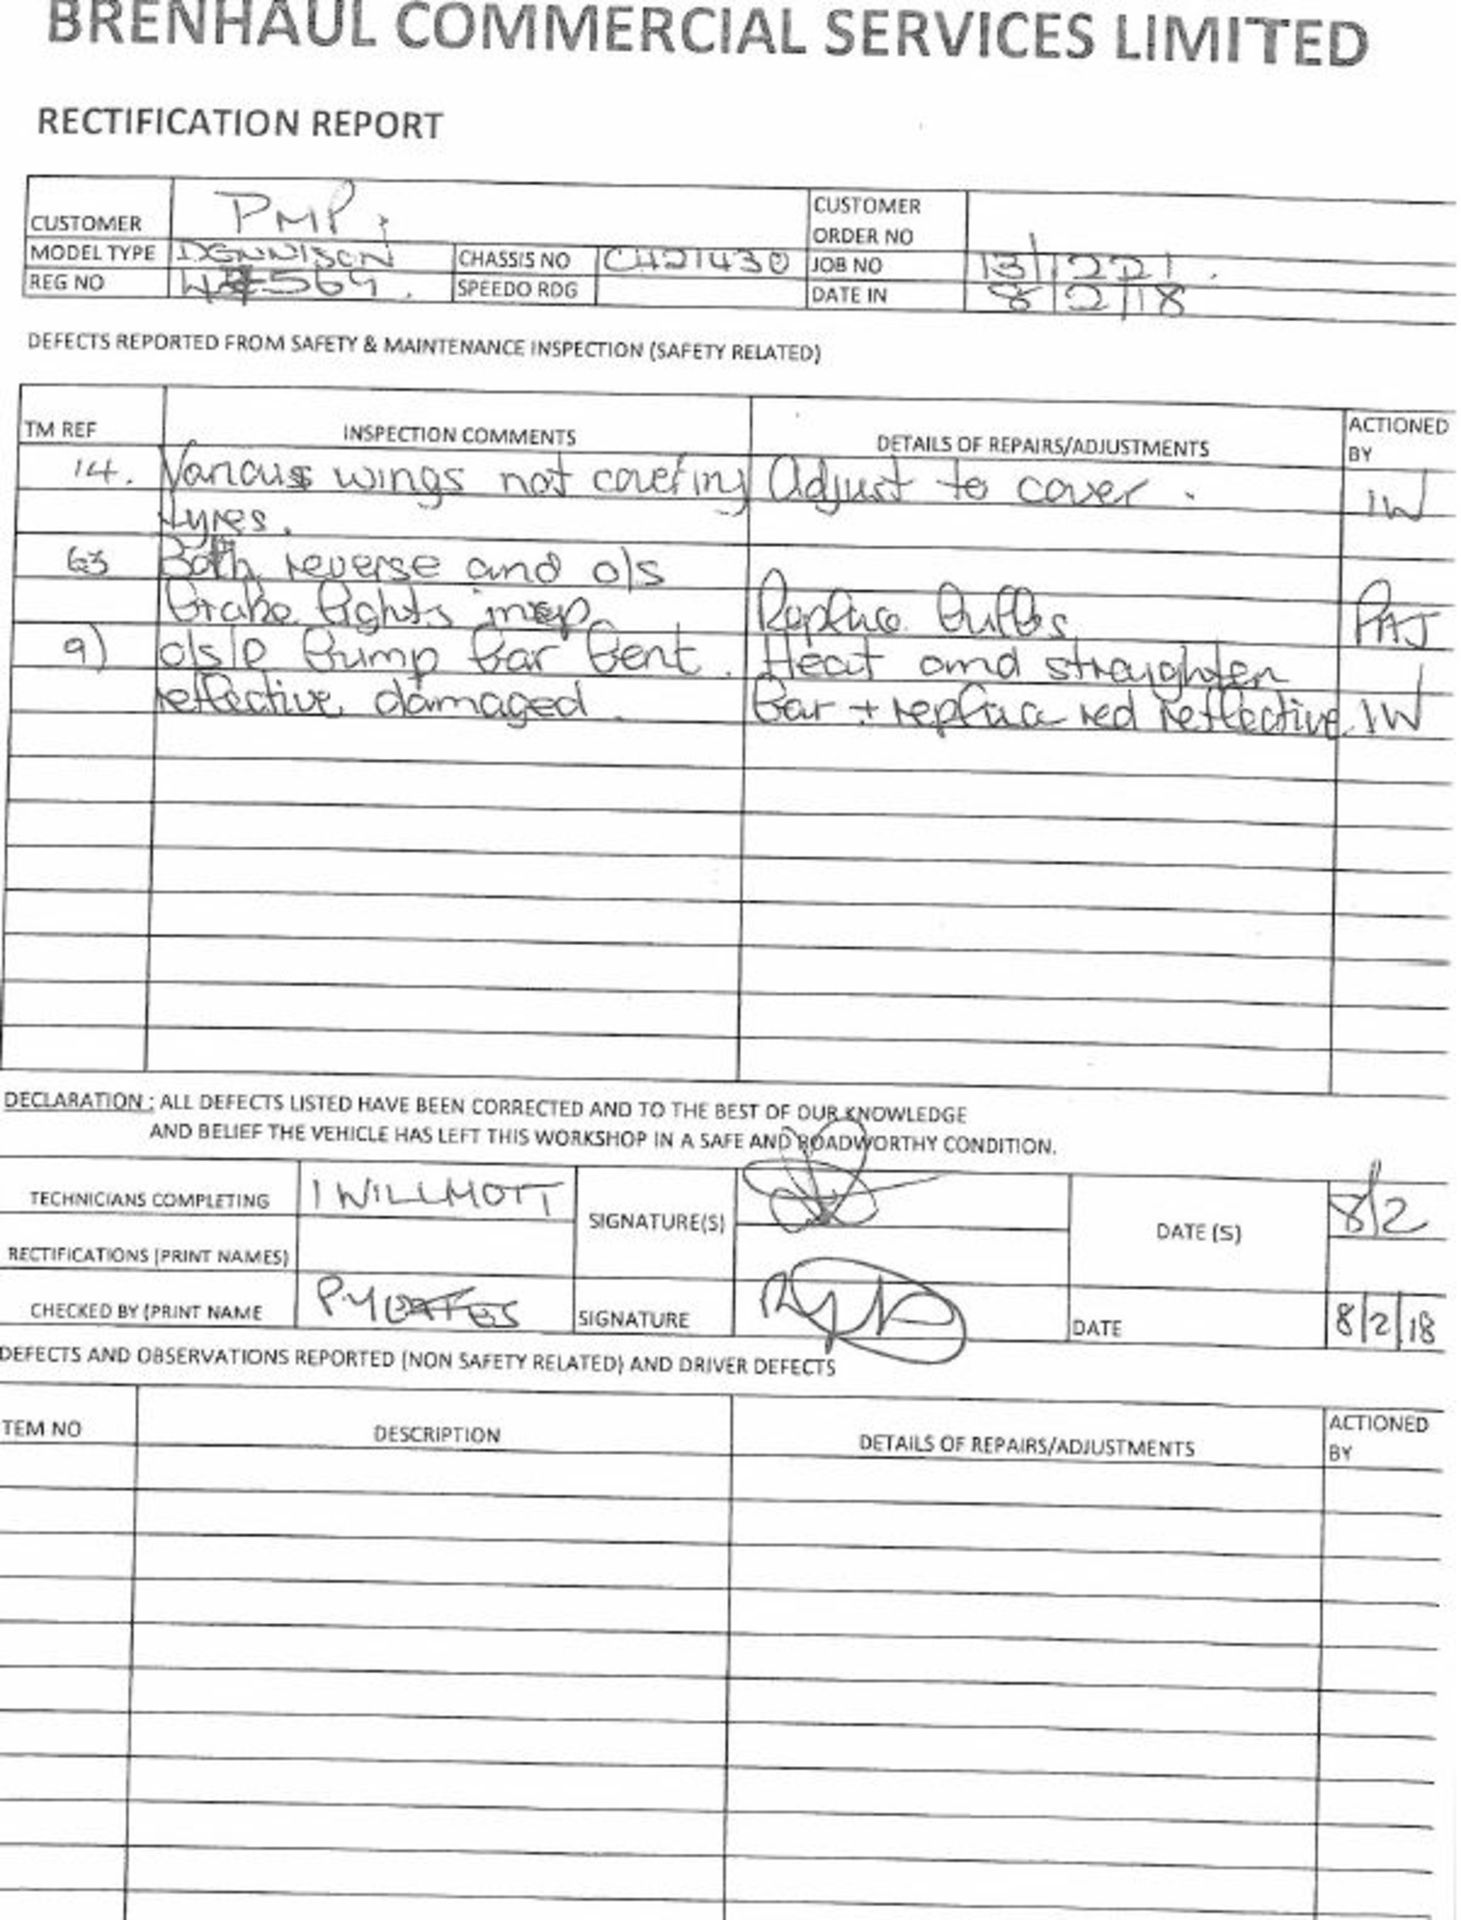 BRENHAUL COMMERCIAL SERVICES LIMITED
RECTIFICATION REPORT
CUSTOMER PMP. CUSTOMER ORDER NO
MODEL TYPE DENNISON CHASSIS NO CH21430 JOB NO 13/1221.
REG NO SPEEDO RDG DATE IN 8/2/18
DEFECTS REPORTED FROM SAFETY & MAINTENANCE INSPECTION (SAFETY RELATED)
TM REF INSPECTION COMMENTS DETAILS OF REPAIRS/ADJUSTMENTS ACTIONED BY
14. Various wings not covering Adjust to cover. IW
tyres.
63 Both reverse and o/s
brake lights inop Replace bulbs PAJ
9) o/s/r bump bar bent. Heat and straighten
reflective damaged. bar + replace red reflective. IW
DECLARATION : ALL DEFECTS LISTED HAVE BEEN CORRECTED AND TO THE BEST OF OUR KNOWLEDGE
AND BELIEF THE VEHICLE HAS LEFT THIS WORKSHOP IN A SAFE AND ROADWORTHY CONDITION.
TECHNICIANS COMPLETING I WILLMOTT SIGNATURE(S) DATE (S) 8/2
RECTIFICATIONS (PRINT NAMES)
CHECKED BY (PRINT NAME P YOATES SIGNATURE DATE 8/2/18
DEFECTS AND OBSERVATIONS REPORTED (NON SAFETY RELATED) AND DRIVER DEFECTS
TEM NO DESCRIPTION DETAILS OF REPAIRS/ADJUSTMENTS ACTIONED BY